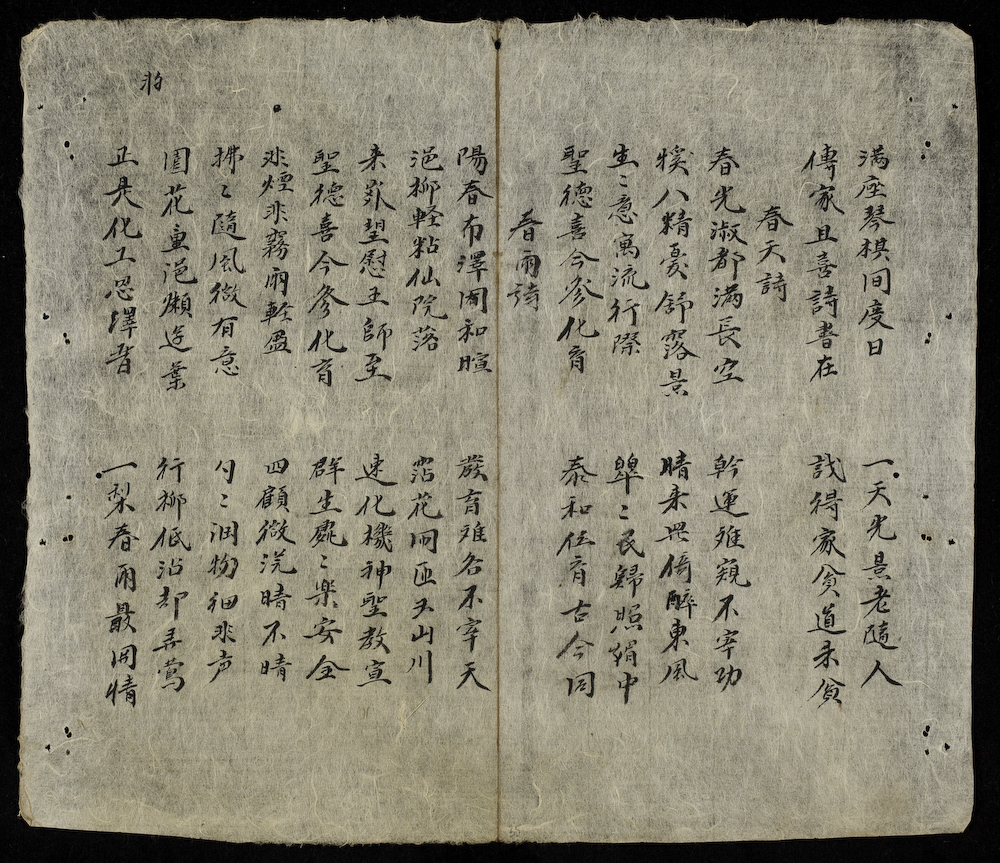 满座琴棋间度日 一天光景老隨人
傳家且喜詩書在 説得家貧道未貧
春天詩
春光淑都满長空 幹運难窺不宰功
八精憂舒露景 晴来畏倚醉東風
生〻意寓流行際 皥〻民歸照中
聖德喜今參化育 泰和位育古今同
春雨詩
陽春布澤闻和暄 發育难名不宰天
浥柳軽粘仙院落 霑花同匝山川
来望慰王師至 速化機神聖教宣
聖德喜今參化育 群生〻樂安全
非煙非霧雨軽盈 四顧微茫暗不晴
拂〻隨風微有意 匀〻润物细非声
園花重浥懶迎葉 行柳低沾却弄鶯
正是化工恩澤普 一犁春雨最関情